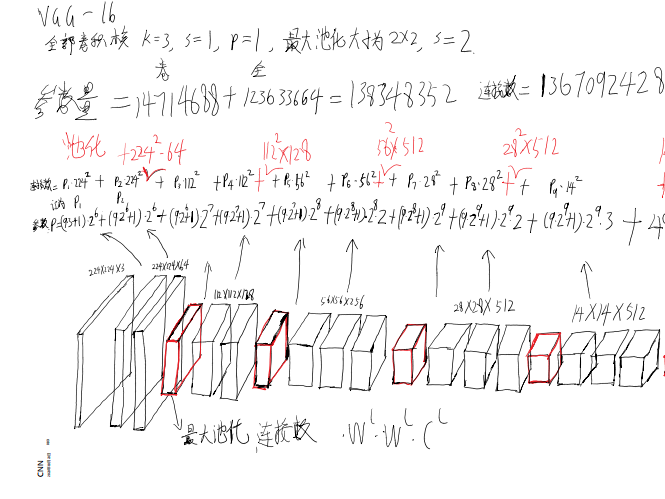 VGG-16
全部卷积核 K=3, S=1, P=1, 最大池化大小为 2×2, S=2
卷 全
参数量 = 14714688 + 123633664 = 138348352 连接数 = 1367092428
池化 +224²·64 112²×128 56²×512 28²×512
连接数 = P₁·224² + P₂·224² + P₃·112² + P₄·112² + P₅·56² + P₆·56² + P₇·28² + P₈·28² + P₉·14²
记为 P₁ P₂
参数 P=(9·3+1)·2⁶+(9·2⁶+1)·2⁶+(9·2⁶+1)·2⁷+(9·2⁷+1)·2⁷+(9·2⁷+1)·2⁸+(9·2⁸+1)·2⁸·2+(9·2⁸+1)·2⁹+(9·2⁹+1)·2⁹·2+(9·2⁹+1)·2⁹·3 +
224×224×3 224×224×64
112×112×128 56×56×256 28×28×512 14×14×512
最大池化, 连接数 ·Wᴸ·Wᴸ·Cᴸ
CNN